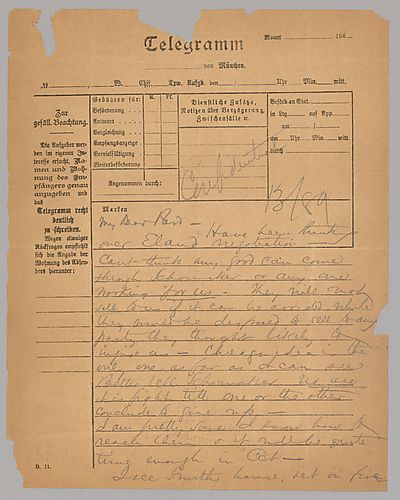 Telegramm
Monat 188
von München.
№ W. Chff. Taxw. Aufgb. den / Uhr Min. mitt.
Zur
gefäll. Beachtung.
Die Aufgeber werden
im eigenen Interesse
ersucht, Namen
und Wohnung
des Empfängers
genau
anzugeben und
das
Telegramm recht
deutlich
zu schreiben.
Wegen etwaiger
Rückfragen empfiehlt
sich die Angabe der
Wohnung des Absenders
hierunter:
Gebühren für: M. Pf.
Beförderung
Antwort
Vergleichung
Empfangsanzeige
Vervielfältigung
Weiterbeförderung
Angenommen durch:
Dienstliche Zusätze,
Notizen über Verzögerung,
Zwischenfälle ꝛc.
Confidential
Befördt an Stat.
in Ltg. auf App.
am /
um Uhr Min. mitt.
durch
13/89
Marken
My Dear
Have been
over negotiation
Can't think any good can come
through Schoumaker or any one
working for us - They will not
sell to us if it can be avoided while
they would be disposed to sell to any
party they thought likely to
us - Chicago idea is the
only one as far as I can see
Better tell Schoumaker
might tell one or the other
conclude to give up -
I am pretty sure I know how to
reach them & it will be quite
time enough in Oct -
I see Smith's house, set on fire
D. 11.